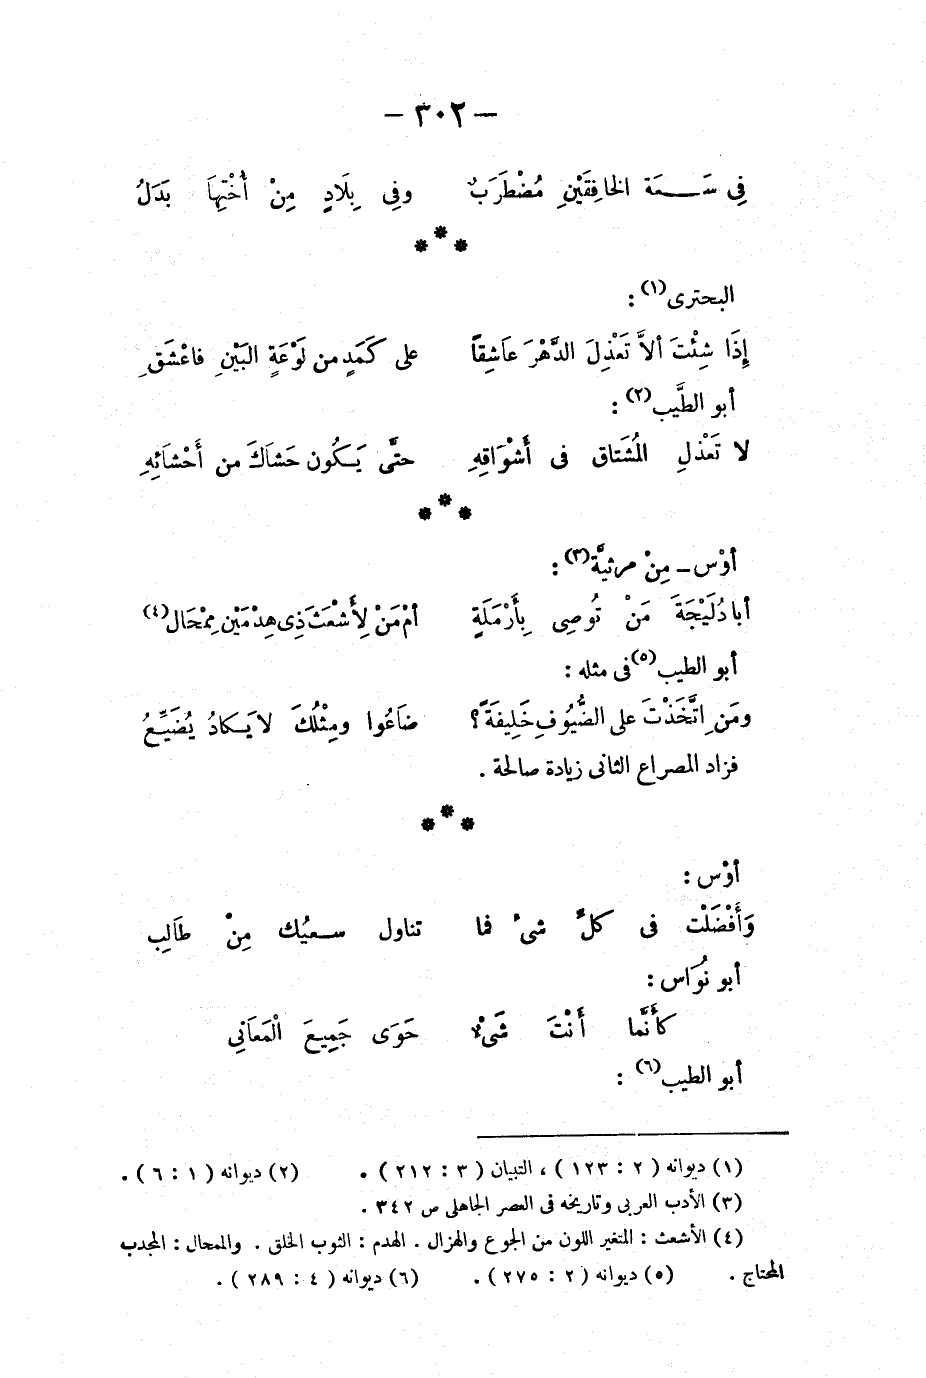 — ٣٠٢ —
فِي سَـــعَة الخافِقَيْنِ مُضْطَرَبٌ وفِي بِلَادٍ مِنْ أُخْتِهَا بَدَلُ
***
البحترى(١) :
إِذَا شِئْتَ ألاَّ تَعْذِلَ الدَّهْرَ عَاشِقاً على كَمَدٍ من لَوْعَةٍ البَيْنِ فاعْشَقِ
أبو الطَّيب(٢) :
لا تَعْذلِ المُشتَاق فى أَشْوَاقِهِ حتَّى يَـكُون حَشاَكَ من أَحْشَائِهِ
***
أوْس – مِنْ مرثيَّة(٣) :
أبا دُلَيْجَةَ مَنْ تُوصِى بِأَرْمَلَةٍ أمْ مَنْ لِأَشعَثَ ذِى هِدْمَيْنِ مِمْحَال(٤)
أبو الطيب(٥) فى مثله :
ومَنِ اتَّخَذْتَ على الضُّيُوفِ خَلِيفَةً؟ ضاَعُوا ومِثْلُكَ لا يَـكادُ يُضَيِّعُ
فزاد المصراع الثانى زيادة صالحة .
***
أوْس :
وَأَفْضَلْت فى كلِّ شىء فما تناول ســعيُك مِنْ طاَلِب
أبو نُوَاس :
كأَنَّما أَنْتَ شَىْءٌ حَوَى جَمِيعَ الْمَعَانِي
أبو الطيب(٦) :
(١) ديوانه ( ٢ : ١٢٣ ) ، التبيان ( ٣ : ٢١٢ ) . (٢) ديوانه ( ١ : ٦ ) .
(٣) الأدب العربى وتاريخه فى العصر الجاهلى ص ٣٤٢ .
(٤) الأشعث : المتغير اللون من الجوع والهزال . الهدم : الثوب الخلق . والممحال : المجدب
المحتاج . (٥) ديوانه ( ٢ : ٢٧٥ ) . (٦) ديوانه ( ٤ : ٢٨٩ ) .